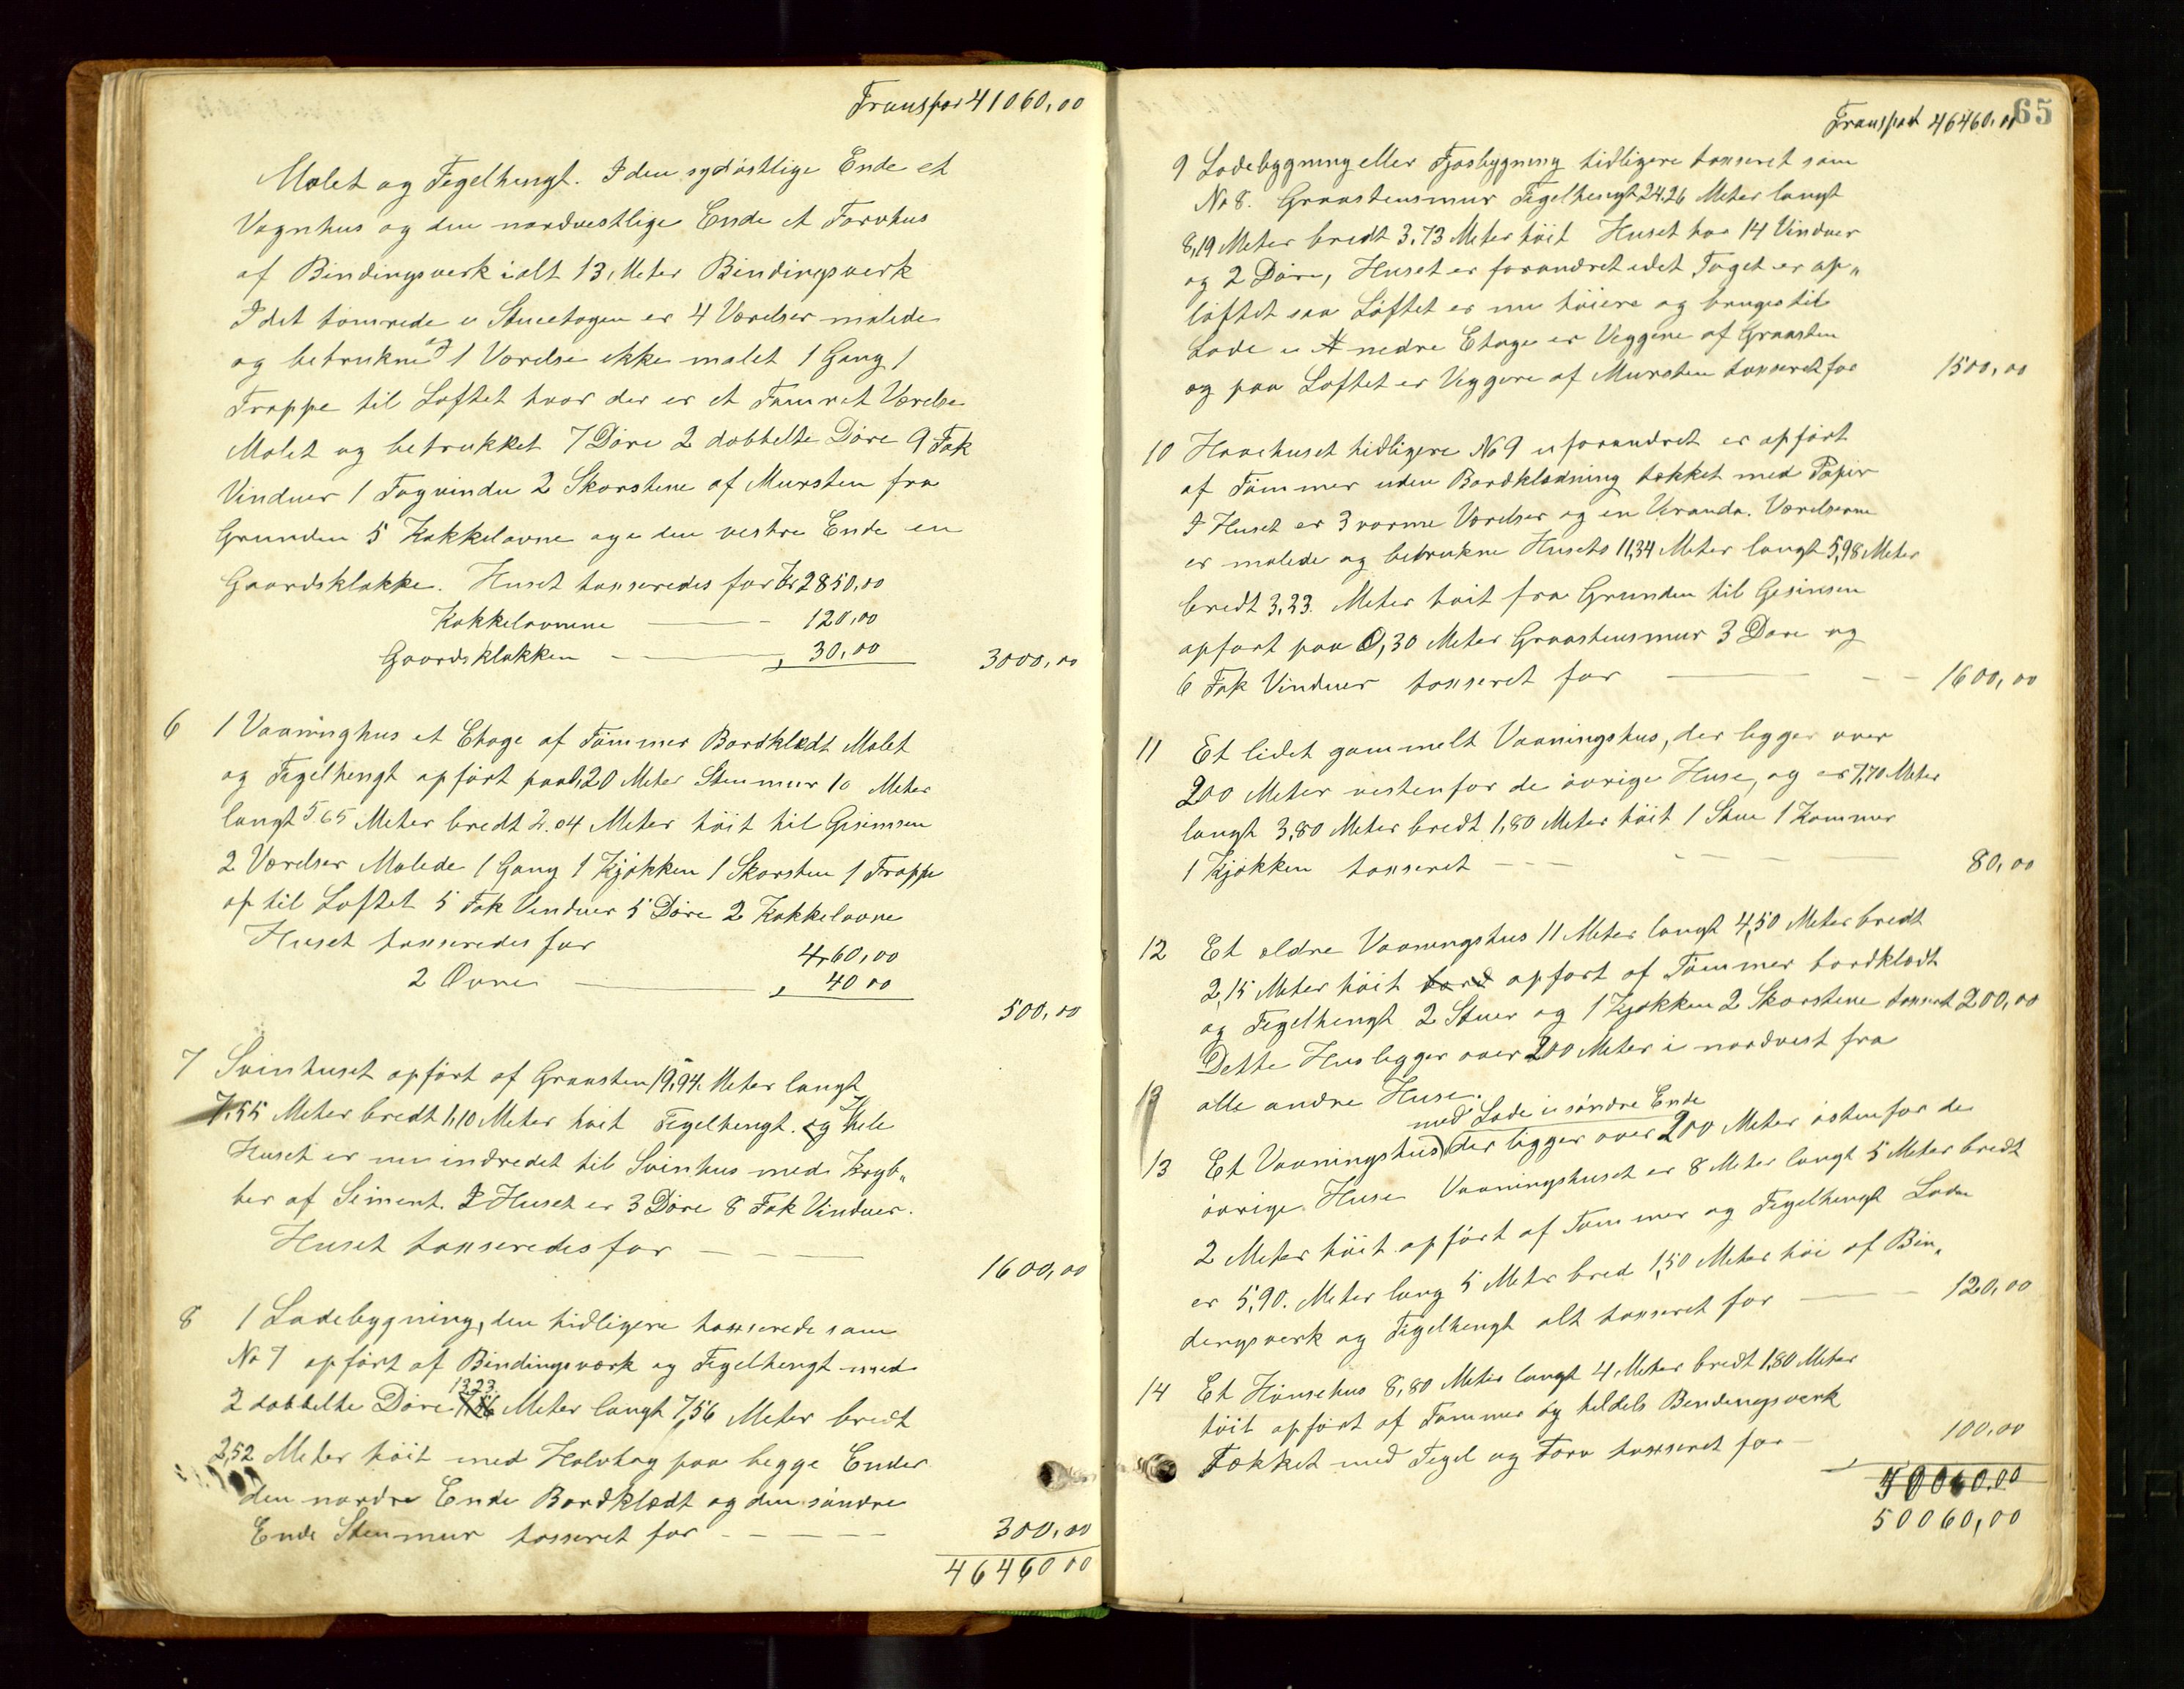 Transpor 41060,00
Malet og Tegelhengt. I den sydöstlige Ende et
Vognhus og den nordvestlige Ende et Torvhus
af Bindingsverk ialt 13, Meter Bindingsverk
I det tömrede i Stueetagen er 4 Værelser malede
og betrukne og 1 Værelse ikke malet 1 Gang 1
Trappe til Loftet hvor der er et Tömret Værelse
Malet og betrukket 7 Döre 2 dobbelte Döre 9 Fak
Vinduer 1 Tagvindu 2 Skorstene af Mursten fra
Grunden 5 Kakkelovne og i den vestre Ende en
Gaardsklokke. Huset taxseredes for Kr 2850,00
Kakkelovnene — - 120,00
Gaardsklokken — „ 30,00 3000,00
6 1 Vaaninghus et Etage af Tömmer Bordklædt Malet
og Tegelhengt opfört paa 1,20 Meter Stenmur 10 Meter
langt 5.65 Meter bredt 2.04 Meter höit til Gesimsen
2 Værelser Malede 1 Gang 1 Kjökken 1 Skorsten 1 Trappe
op til Loftet 5 Fak Vinduer 5 Döre 2 Kakkelovne
Huset taxseredes for 460,00
2 Ovne — „ 40 00
500,00
7 Svinhuset opfört af Graasten 19,94 Meter langt
7,55 Meter bredt 1,10 Meter höit Tegelhengt. og Hele
Huset er nu indredet til Svinhus med Kryb„
ber af Siment. I Huset er 3 Döre 8 Fak Vinduer.
Huset taxseredes for — — —
1600,00
8 1 Ladebygning, den tidligere taxserede som
No 7 opfört af Bindingsværk og Tegelhengt med
2 dobbelte Döre 13,23 Meter langt 7,56 Meter bredt
2,52 Meter höit med Halvtag paa begge Ender
den nordre Ende Bordklædt og den söndre
Ende Stenmur taxseret for - — — — 300,00
46460 00
65
Transport 46460,00
9 Ladebygning eller Fjosbygning tidligere taxseret som
No 8. Graastensmur Tegelhengt 24.26 Meter langt
8,19 Meter bredt 3,73 Meter höit Huset har 14 Vinduer
og 2 Döre, Huset er forandret idet Taget er op„
löftet saa Löftet er nu höiere og bruges til
Lade i nedre Etage er Veggene af Graasten
og paa Loftet er Veggene af Mursten taxseret for 1500,00
10 Havehuset tidligere No 9 uforandret er opfört
af Tömmer uden Bordklædning tækket med Papir
I Huset er 3 varme Værelser og en Veranda. Værelserne
er malede og betrukne Husets 11,34 Meter langt 5,98 Meter
bredt 3,23. Meter höit fra Grunden til Gesimsen
opfört paa 0,30 Meter Graastensmur 3 Döre og
6 Fak Vinduer taxseret for — - - 1600,00
11 Et lidet gammelt Vaaningshus, der ligger over
200 Meter vestenfor de övrige Huse, og er 7,70 Meter
langt 3,80 Meter bredt 1,80 Meter höit 1 Stue 1 Kammer
1 Kjökken taxseret - — — — — 80,00
12 Et ældre Vaaningshus 11 Meter langt 4,50 Meter bredt
2,15 Meter höit bord opfört af Tömmer bordklædt
og Tegelhengt 2 Stuer og 1 Kjökken 2 Skorstene taxseret 200,00
Dette Hus ligger over 200 Meter i nordvest fra
13 alle andre Huse.
med Lade i söndre Ende
13 Et Vaaningshus der ligger over 200 Meter östenfor de
övrige Huse Vaaningshuset er 8 Meter langt 5 Meter bredt
2 Meter höit opfört af Tömmer og Tegelhengt Laden
er 5,90. Meter lang 5 Meter bred 1,50 Meter höi af Bin„
dingsverk og Tegelhengt alt taxseret for — - 120,00
14 Et Hönsehus 8,80 Meter langt 4 Meter bredt 1,80 Meter
höit opfört af Tömmer og tildels Bindingsverk
Tækket med Tegel og Torv taxseret for - 100,00
50060,00
50060,00